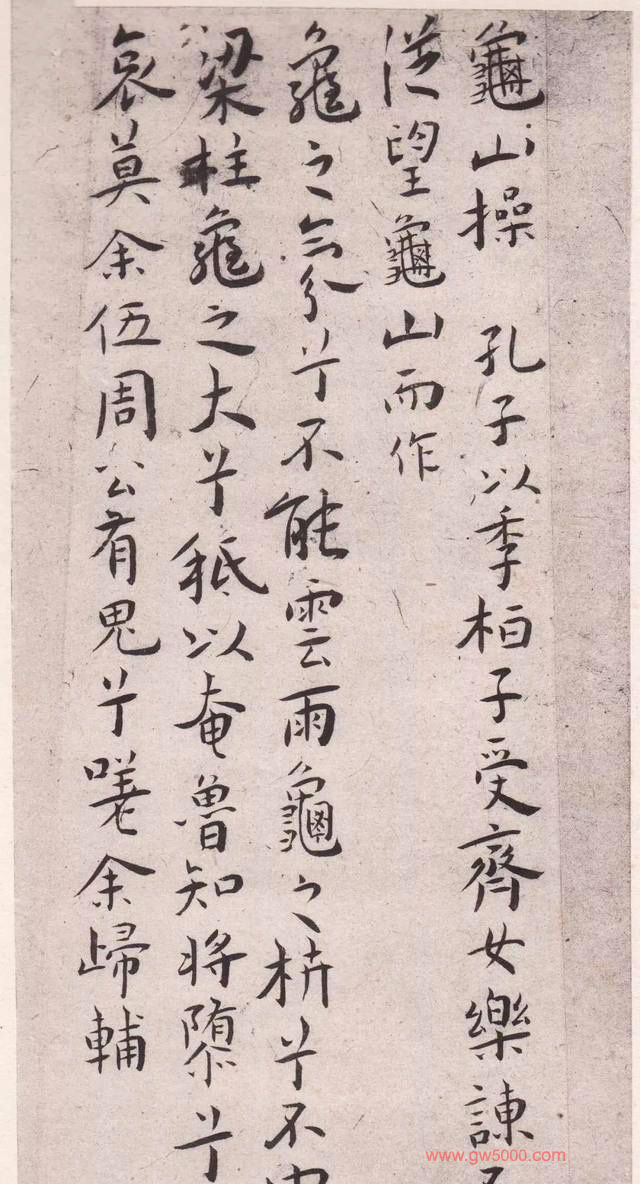 龜山操 孔子以季柏子受齊女樂諫不
従望龜山而作
龜之氛兮不能雲雨龜之枿兮不中
梁柱龜之大兮秖以奄魯知将隳兮
哀莫余伍周公有鬼兮嗟余歸輔
www.gw5000.com